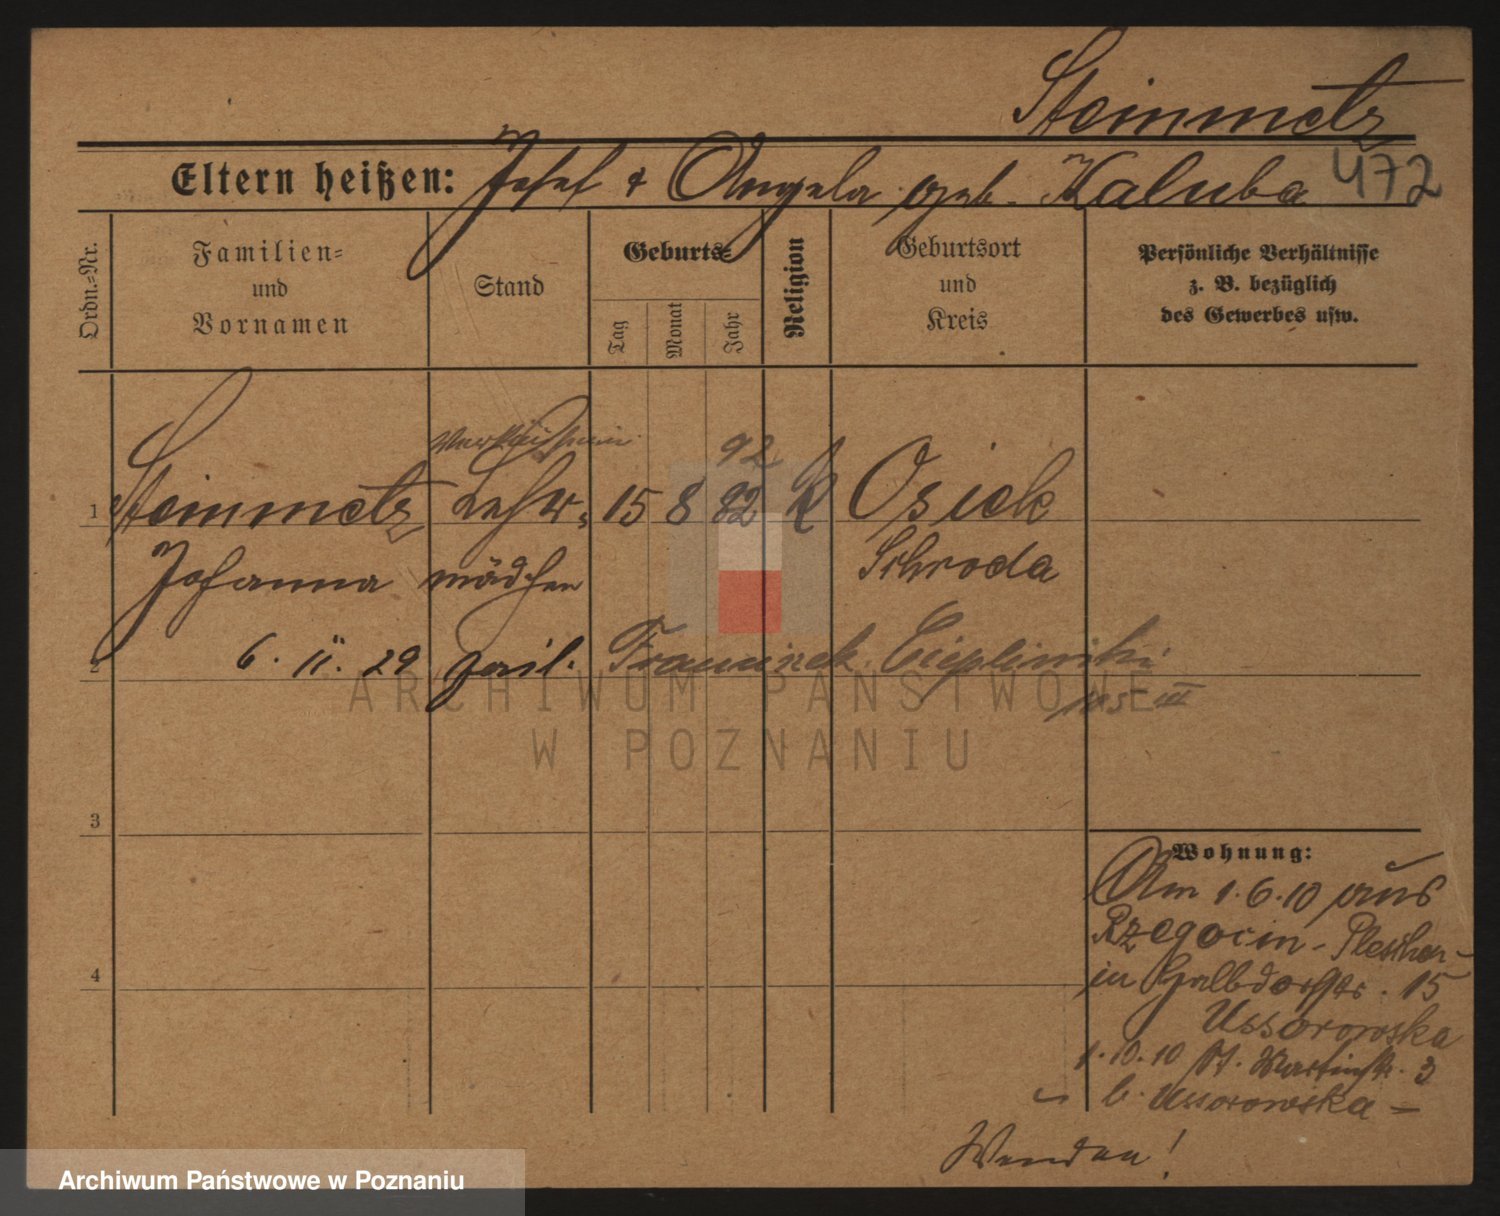 Steinmetz
Eltern heißen: Josef & Angela geb. Kaluba 472
Ordn.=Nr.
Familien=
und
Vornamen
Stand
Geburts=
Tag
Monat
Jahr
Religion
Geburtsort
und
Kreis
Persönliche Verhältnisse
z. B. bezüglich
des Gewerbes usw.
Verkäuferin 92
1 Steinmetz Lehr= 15 8 82 k Osiek
Johanna mädchen Schroda
2 6. 11. 29 Franciszek Cieplinski
III
3
4
Wohnung:
Am 1.6.10 aus
Rzegocin - Pleschen -
in Halbdorfstr. 15
Ussorowska
1.10.10 St. Martinstr. 3
b. Ussorowska =
Wenden!
ARCHIWUM PAŃSTWOWE
W POZNANIU
Archiwum Państwowe w Poznaniu